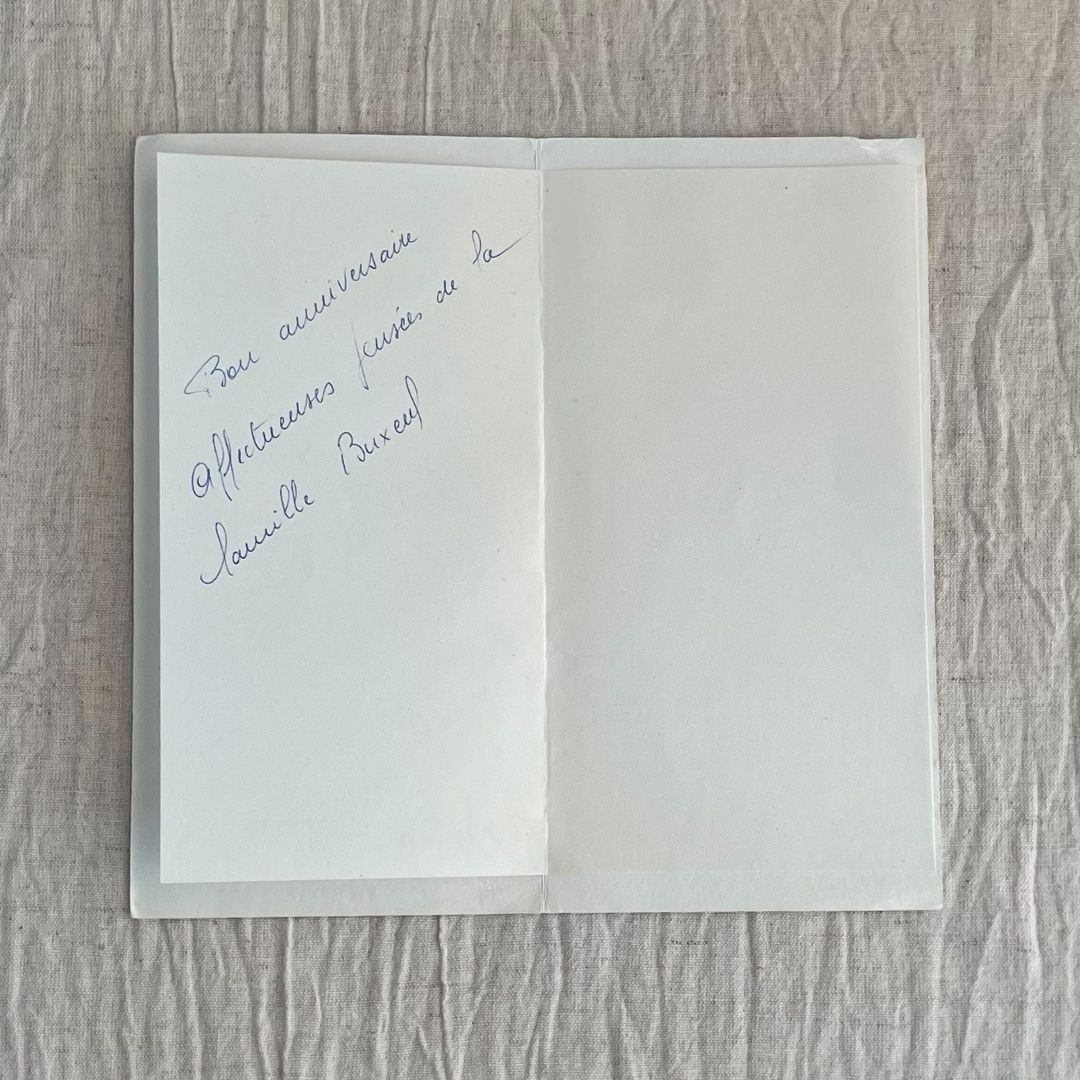 Bon anniversaire
affectueuses pensées de la
famille Buxeuf